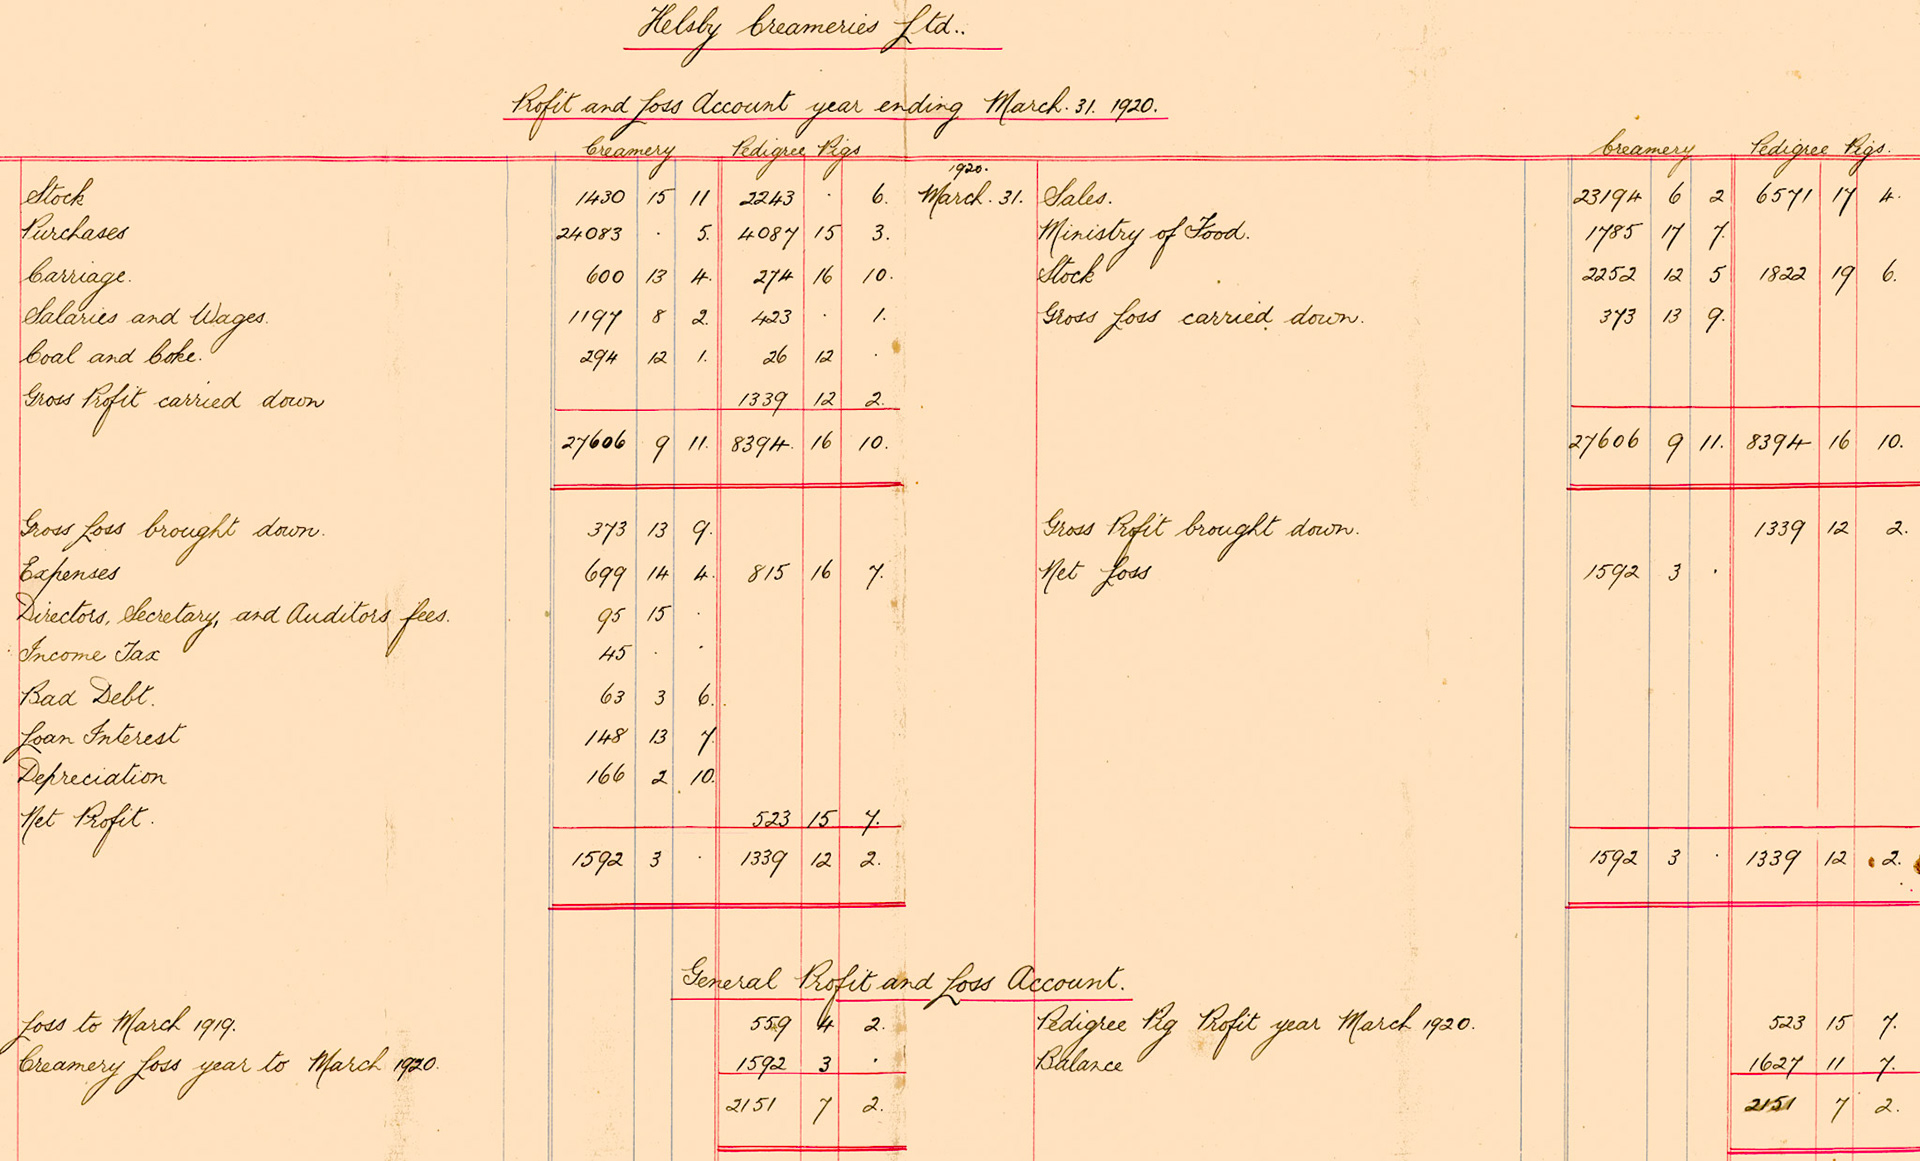 Helsby Creameries Ltd..
Profit and Loss Account year ending March. 31. 1920.
Creamery Pedigree Pigs Creamery Pedigree Pigs.
1920.
Stock 1430 15 11 2243 . 6. March. 31. Sales. 23194 6 2 6571 17 4.
Purchases 24083 . 5. 4087 15 3. Ministry of Food. 1785 17 7.
Carriage. 600 13 4. 274 16 10. Stock 2252 12 5 1822 19 6.
Salaries and Wages. 1197 8 2. 423 . 1. Gross Loss carried down. 373 13 9.
Coal and Coke. 294 12 1. 26 12 .
Gross Profit carried down 1339 12 2.
27606 9 11. 8394. 16 10. 27606 9 11. 8394 16 10.
Gross Loss brought down. 373 13 9. Gross Profit brought down. 1339 12 2.
Expenses 699 14 4. 815 16 7. Net Loss 1592 3 .
Directors, Secretary, and Auditors fees. 95 15 .
Income Tax 45 . .
Bad Debt. 63 3 6.
Loan Interest 148 13 7
Depreciation 166 2 10.
Net Profit. 523 15 7.
1592 3 . 1339 12 2. 1592 3 . 1339 12 2.
General Profit and Loss Account.
Loss to March 1919. 559 4 2. Pedigree Pig Profit year March 1920. 523 15 7.
Creamery Loss year to March 1920. 1592 3 . Balance 1627 11 7.
2151 7 2. 2151 7 2.